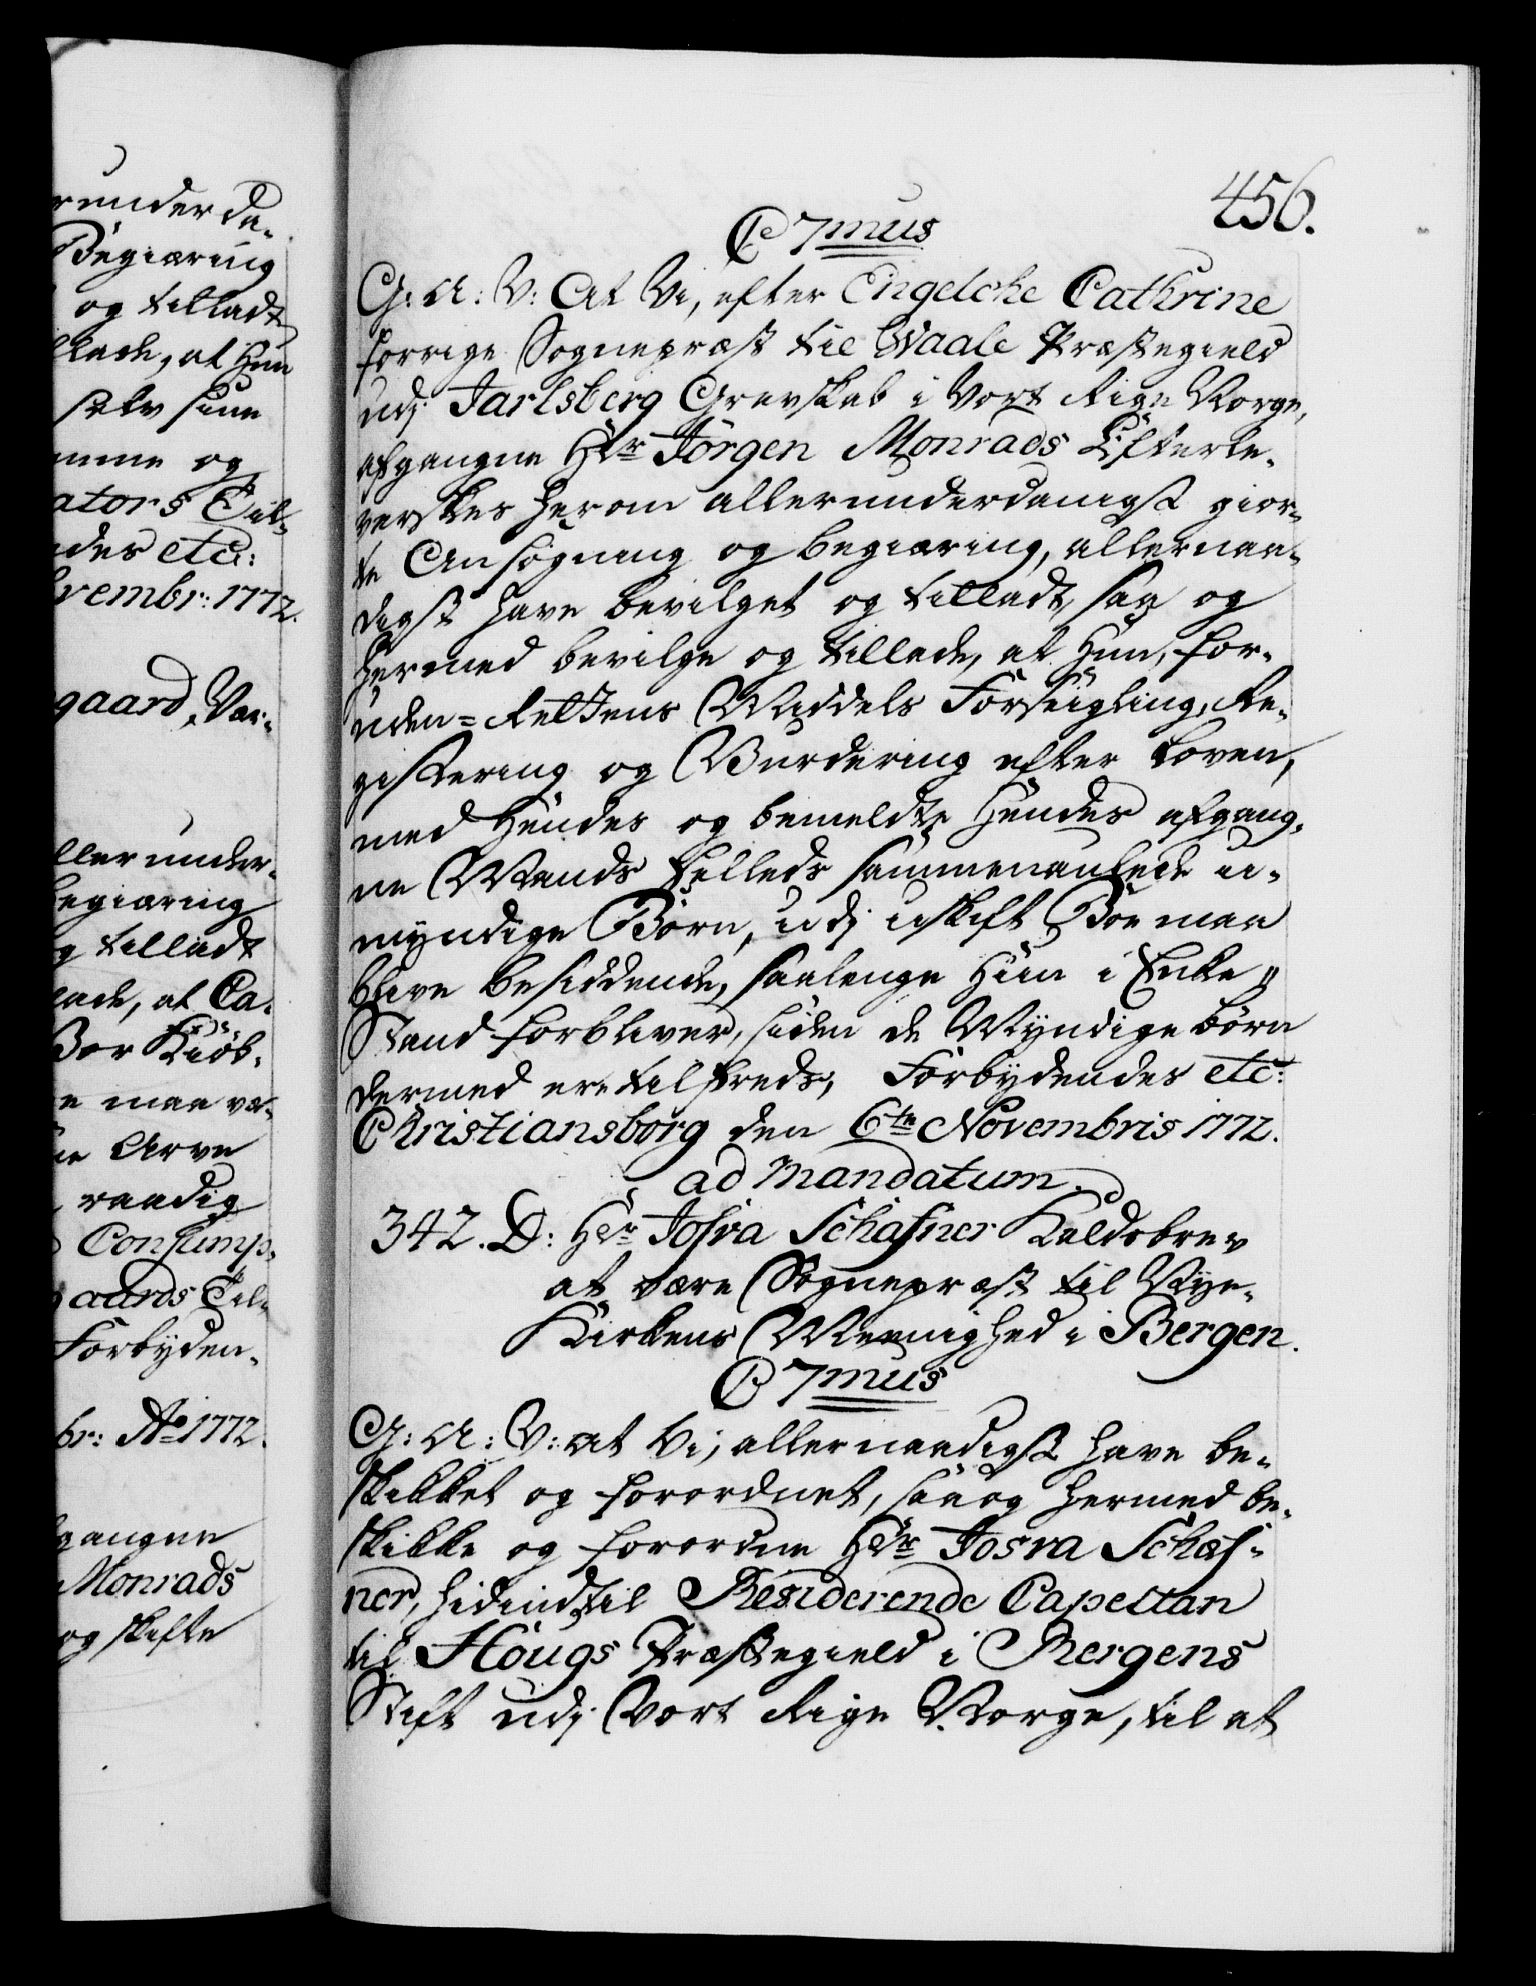 runderda-
Begiæring
og tilladt
llade, at Hun
selv sine
mme og
ators Til-
des etc:
vembr: 1772.
gaard, Var-
ller under-
begiæring
g tilladt
lade, at Ca-
Bor Kiöb-
e maa væ-
ne Arve
raadig
Consump-
aards Til-
Forbyden-
br: Ao 1772.
gangne
Monrads
og skifte
456.
C 7mus
G: A: V: At Vi, efter Engelche Cathrine
forrige Sognepræst til Waale Præstegield
udj Jarlsberg Grevskab i Vort Rige Norge,
afgangne Hr Jörgen Monrads Efterle-
verskes herom allerunderdanigst gior-
te Ansögning og begiæring, allernaa-
digst have bevilget og tilladt, saa og
hermed bevilge og tillade, at Hun, for-
uden-Rettens Middels Forseigling, Re-
gistering og Vurdering efter Loven,
med Hendes og bemeldte Hendes afgang-
ne Mands felleds sammenaulede u-
myndige Börn, udj uskift Boe maa
blive besiddende, saalenge Hun i Enke-
Stand forbliver, siden de Myndige börn
dermed ere tilfreds, Forbydendes etc:
Christiansborg den 6te Novembris 1772.
ad Mandatum.
342. D: Hr Josva Schafner Kaldsbrev
at være Sognepræst til Nye-
Kirkens Meenighed i Bergen.
C 7mus
G: A: V: at Vi, allernaadigst have be-
skikket og forordnet, saa og hermed be-
skikke og forordne Hr Josva Schaf-
ner, hidindtil Residerende Capellan
til Hougs Præstegield i Bergens
Stift udj Vort Rige Norge, til at